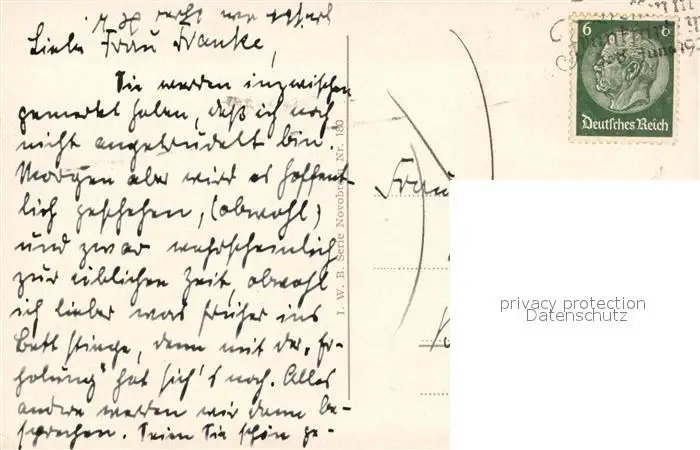 Liebe Frau Franke,
Sie werden inzwischen
gemerkt haben, daß ich noch
nicht angetrudelt bin.
Morgen aber wird es hoffent-
lich geschehen, (obwohl)
und zwar wahrscheinlich
zur üblichen Zeit, obwohl
ich lieber was früher ins
Bett stiege, denn mit der „Er-
holung" hat sich's noch. Alles
andere werden wir dann be-
sprechen. Seien Sie schön ge-
I. W. B. Serie Novobrom Nr. 180
Frau
6 6
Deutsches Reich
privacy protection
Datenschutz